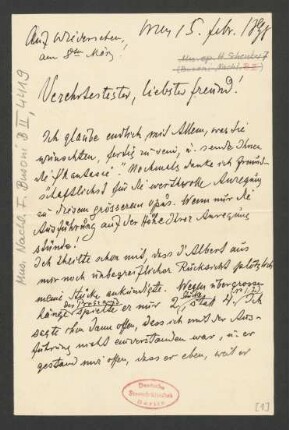 Auf Wiedersehen,
am 8ten März!
Wien, 5. Febr. 1898
Mus. ep. H. Schenker 7
(Busoni-Nachl. B II)
Mus. Nachl. F. Busoni B II, 4419
Verehrtester, liebster Freund!
Ich glaube endlich mit Allem, was Sie
wünschten, fertig zu sein, u. sende Ihnen
die "Phantasie". Nochmals danke ich freund-
schaftlichst für die wertvolle Anregung
zu diesem grösseren opus. Wenn nur die
Ausführung auf der Höhe Ihrer Anregung
stünde!
Ich theilte schon mit, dass d'Albert aus
mir noch unbegreiflicher Rücksicht plötzlich
meine Stücke ankündigte. Wegen übergrosser
Länge des Programms spielte er nur 2 Stücke, statt 4. Ich
sagte ihm dann offen, dass ich mit der Aus-
führung nicht einverstanden war, u. er
gestand mir offen, dass er eben, weil er
Deutsche
Staatsbibliothek
Berlin
[1]